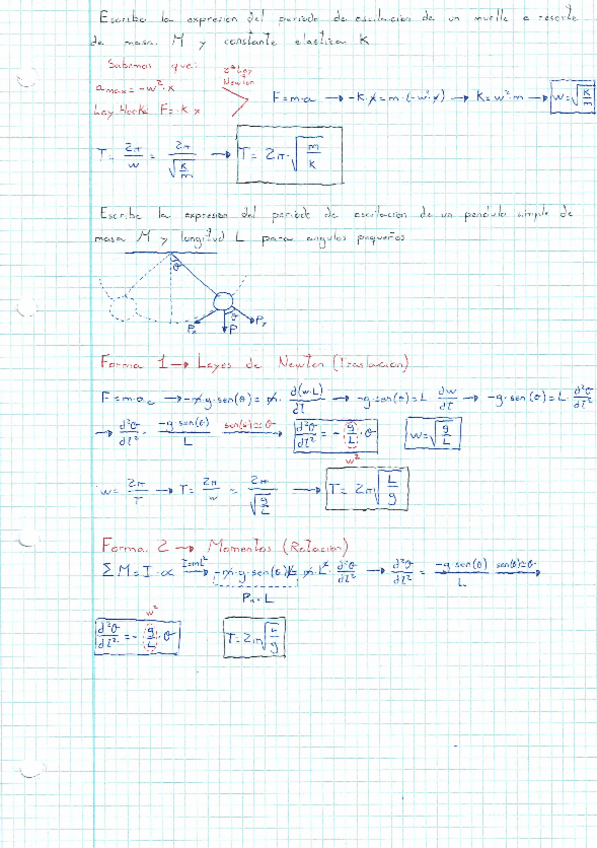 Escribe la expresion del periodo de oscilacion de un muelle o resorte
de masa M y constante elastica K
Sabemos que:
a max = -w²·x
Ley Hooke F=-k·x
2ª Ley Newton
F=m·a → -k·x = m·(-w²·x) → K=w²·m → w=√(K/m)
T= 2π/w = 2π/√(K/m) → T=2π·√(m/k)
Escribe la expresion del periodo de oscilacion de un pendulo simple de
masa M y longitud L para angulos pequeños
θ
θ
Px P Py
Forma 1 → Leyes de Newton (Traslacion)
F=m·ac → -m·g·sen(θ)= m· d(w·L)/dt → -g·sen(θ)=L dw/dt → -g·sen(θ)=L· d²θ/dt²
→ d²θ/dt² = -g·sen(θ)/L sen(θ)≈θ → d²θ/dt² = -g/L·θ w=√(g/L)
w²
w= 2π/T → T= 2π/w = 2π/√(g/L) → T=2π√(L/g)
Forma 2 → Momentos (Rotacion)
ΣM=I·α I=mL² → -m·g·sen(θ)·L = m·L²· d²θ/dt² → d²θ/dt² = -g·sen(θ)/L sen(θ)≈θ →
Px·L
w²
d²θ/dt² = -g/L·θ T=2π√(L/g)